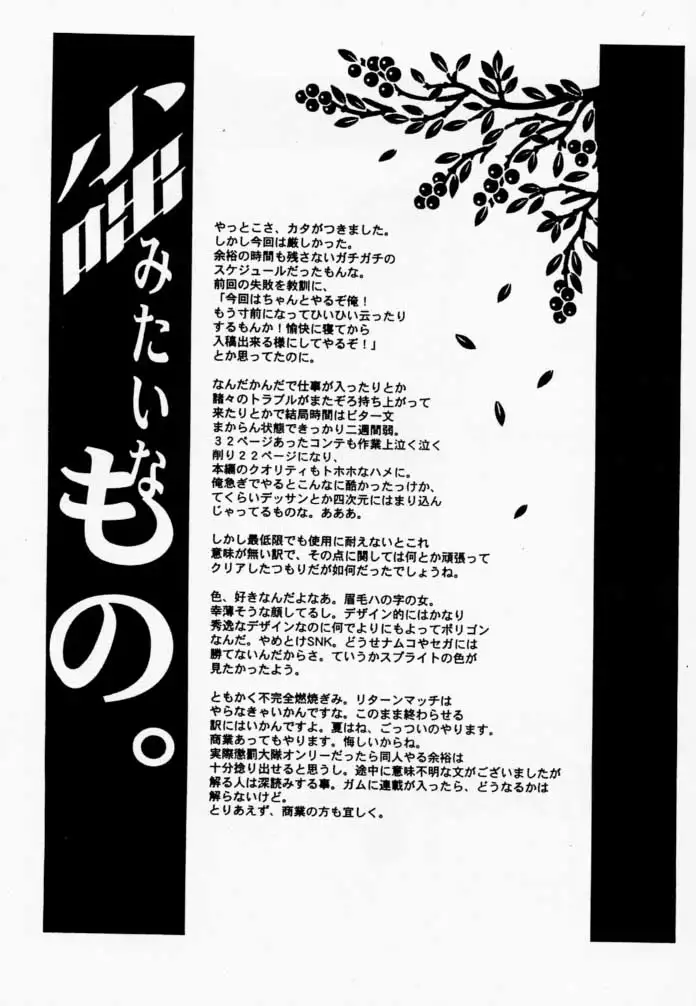 みたいなもの。
やっとこさ、カタがつきました。
しかし今回は厳しかった。
余裕の時間も残さないガチガチの
スケジュールだったもんな。
前回の失敗を教訓に、
「今回はちゃんとやるぞ俺！
もう寸前になってひいひい云ったり
するもんか！愉快に寝てから
入稿出来る様にしてやるぞ！」
とか思ってたのに。
なんだかんだで仕事が入ったりとか
諸々のトラブルがまたぞろ持ち上がって
来たりとかで結局時間はビタ一文
まからん状態できっかり二週間弱。
３２ページあったコンテも作業上泣く泣く
削り２２ページになり、
本編のクオリティもトホホなハメに。
俺急ぎでやるとこんなに酷かったっけか、
てくらいデッサンとか四次元にはまり込ん
じゃってるものな。あああ。
しかし最低限でも使用に耐えないとこれ
意味が無い訳で、その点に関しては何とか頑張って
クリアしたつもりだが如何だったでしょうね。
色、好きなんだよなあ。眉毛ハの字の女。
幸薄そうな顔してるし。デザイン的にはかなり
秀逸なデザインなのに何でよりにもよってポリゴン
なんだ。やめとけSNK。どうせナムコやセガには
勝てないんだからさ。ていうかスプライトの色が
見たかったよう。
ともかく不完全燃焼ぎみ。リターンマッチは
やらなきゃいかんですな。このまま終わらせる
訳にはいかんですよ。夏はね、ごっついのやります。
商業あってもやります。悔しいからね。
実際懲罰大隊オンリーだったら同人やる余裕は
十分捻り出せると思うし。途中に意味不明な文がございましたが
解る人は深読みする事。ガムに連載が入ったら、どうなるかは
解らないけど。
とりあえず、商業の方も宜しく。